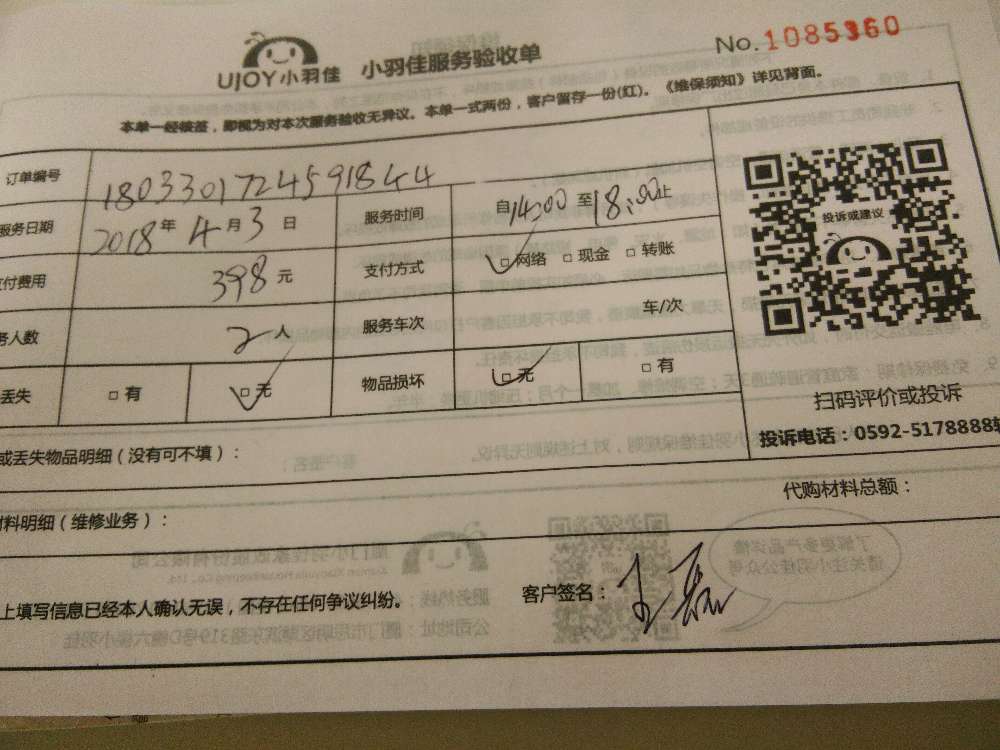 UJOY小羽佳 小羽佳服务验收单 No.1085360
本单一经核签，即视为对本次服务验收无异议。本单一式两份，客户留存一份(红)。《维保须知》详见背面。
订单编号 1803301724591844
服务日期 2018年4月3日 服务时间 自14:00至18:00止
付费用 398元 支付方式 □网络 □现金 □转账
务人数 2人 服务车次 车/次
丢失 □有 □无 物品损坏 □无 □有
投诉或建议
扫码评价或投诉
投诉电话：0592-5178888转
或丢失物品明细（没有可不填）：
代购材料总额：
材料明细（维修业务）：
上填写信息已经本人确认无误，不存在任何争议纠纷。 客户签名：王磊